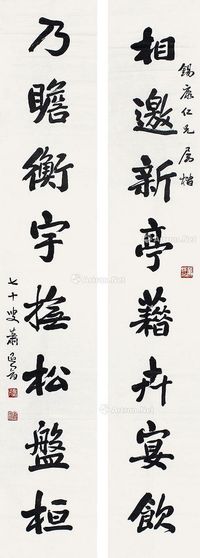 錫康仁兄屬楷
相邀新亭藉卉宴飲
乃瞻衡宇撫松盤桓
七十叟蕭